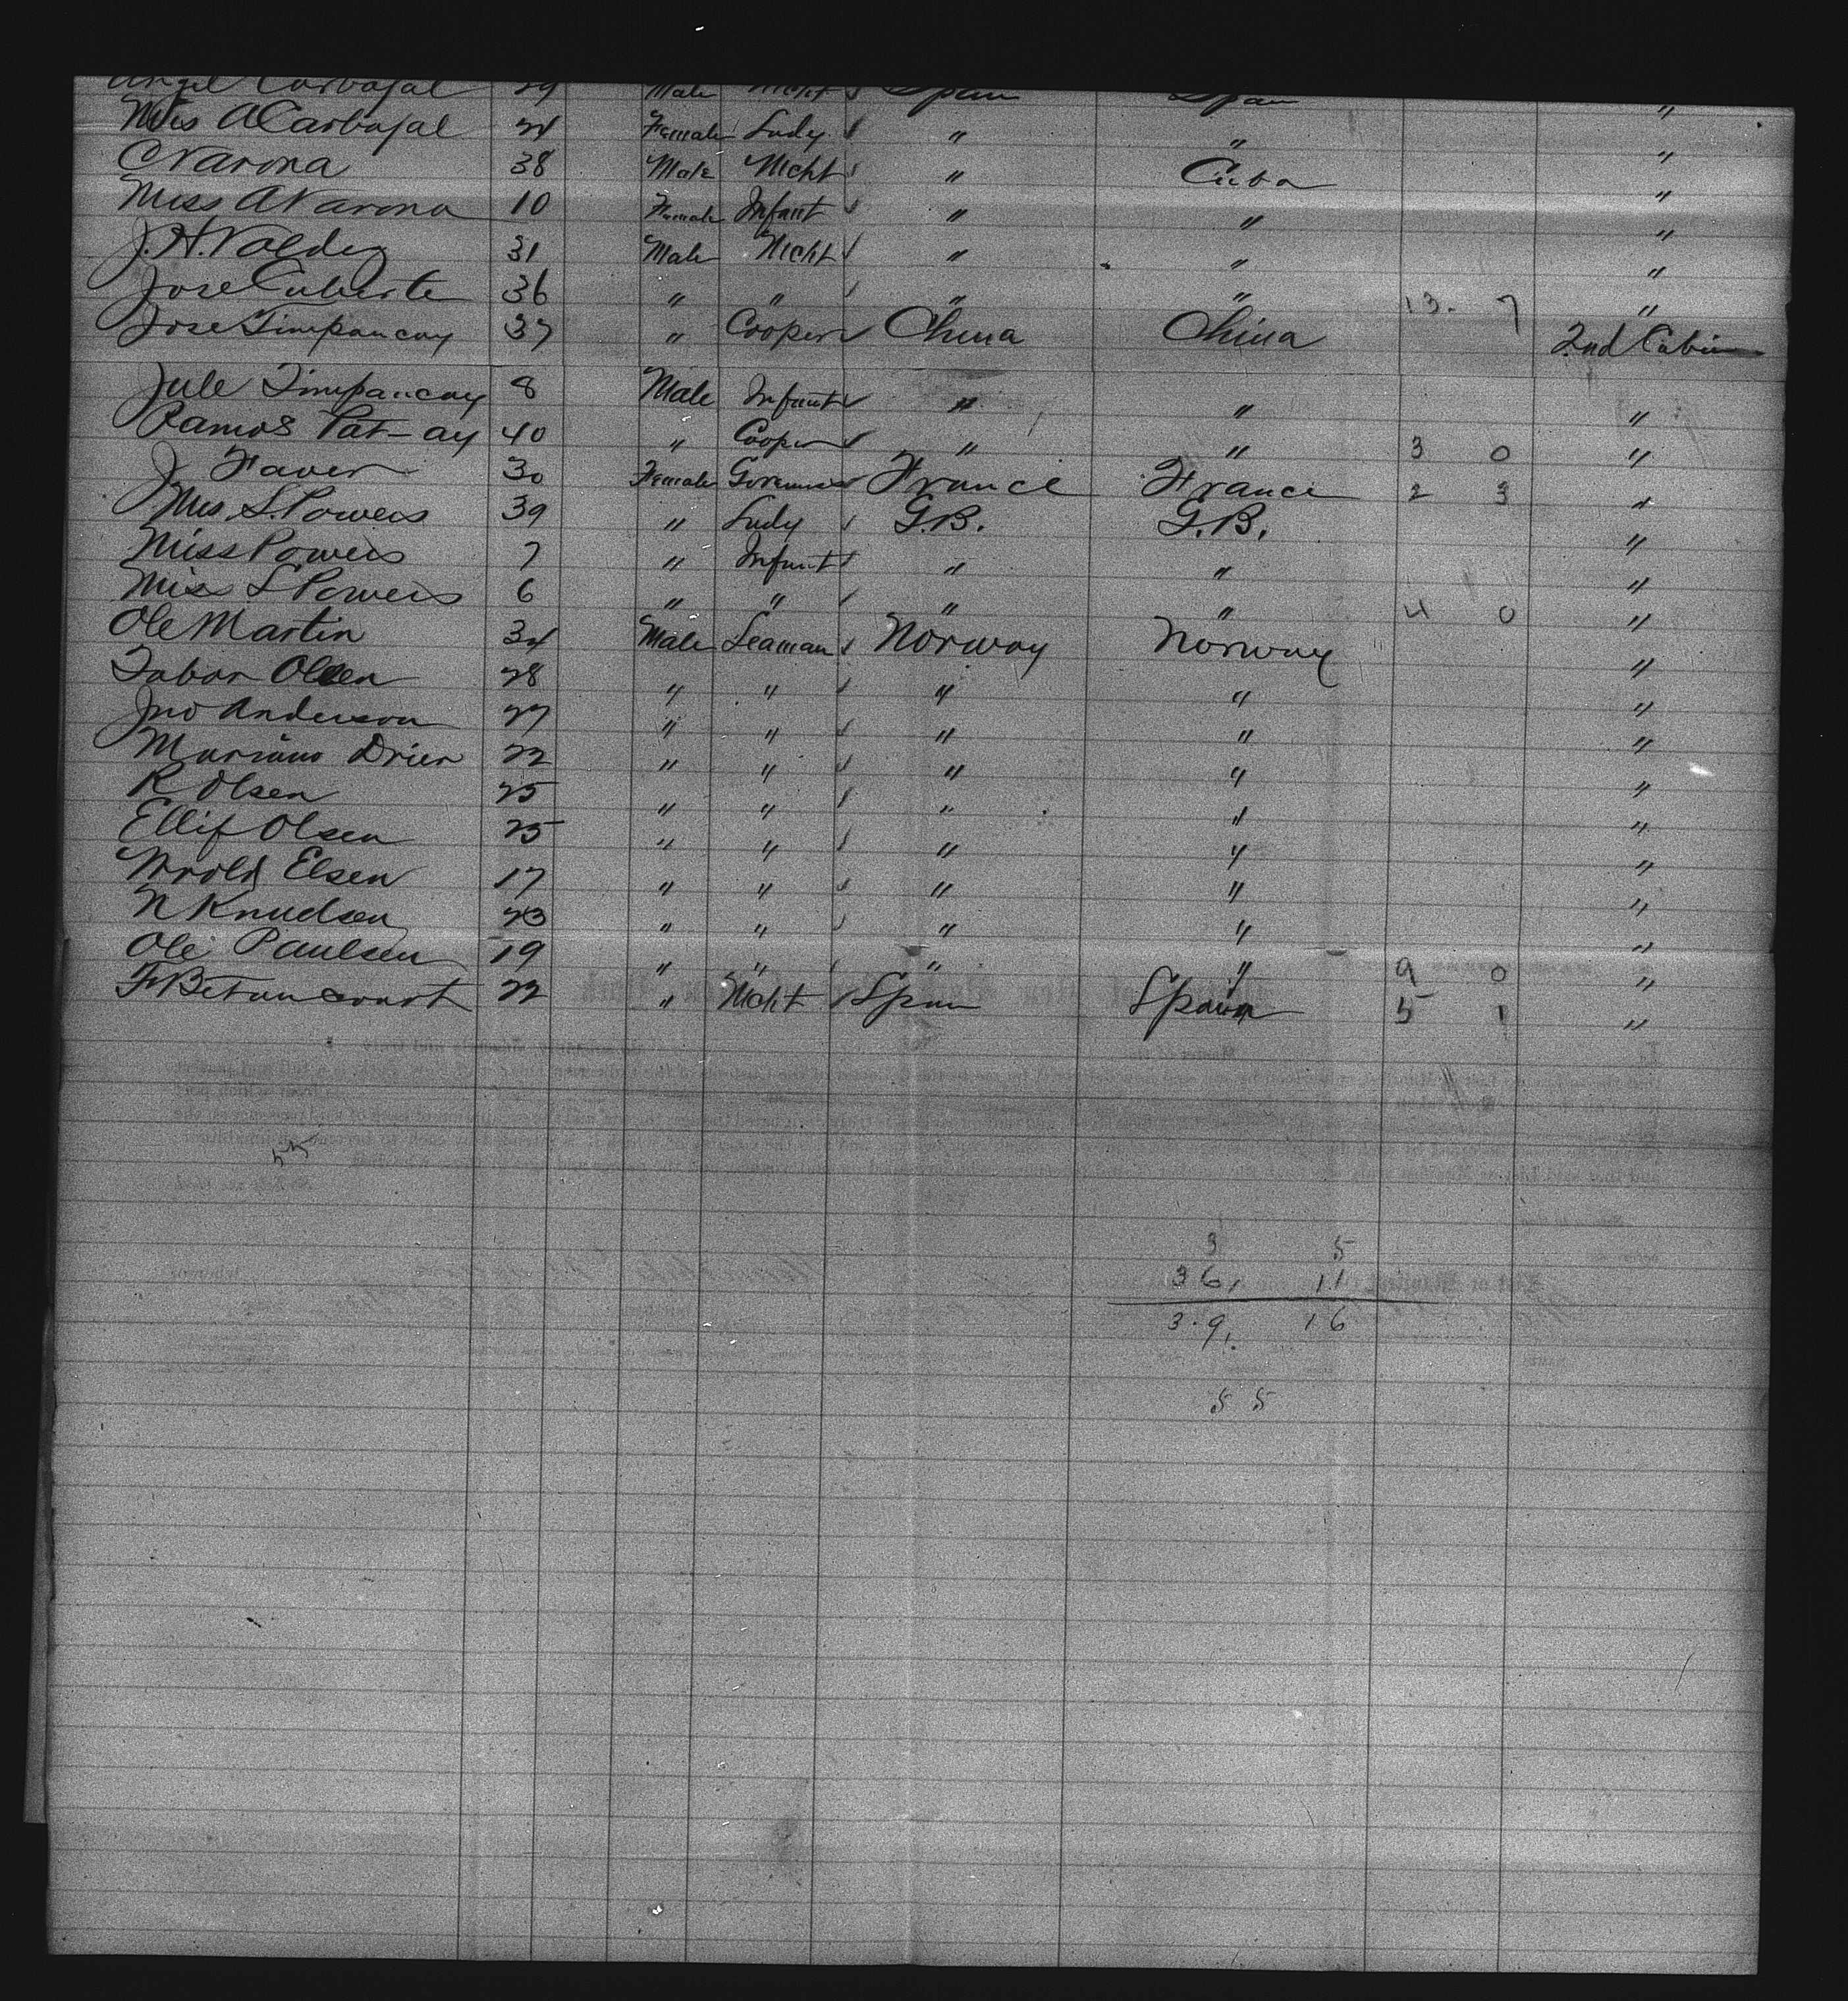 Angel Carbajal 29 Male Mcht Spain Spain "
Mrs A Carbajal 24 Female Lady " " "
C Varona 38 Male Mcht " Cuba "
Miss A Varona 10 Female Infant " " "
J. H. Valdez 31 Male Mcht " " "
Jose 36 " " " " 13. 7 "
Jose Timpancay 37 " Cooper China China 2nd Cabin
Jule Timpancay 8 Male Infant " " "
Ramos Pat-ay 40 " Cooper " " 3 0 "
J Faver 30 Female Governess France France 2 3 "
Mrs. S. Powers 39 " Lady G.B. G.B. "
Miss Powers 7 " Infant " " "
Miss S Powers 6 " " " " 4 0 "
Ole Martin 34 Male Seaman Norway Norway "
Tabor Olsen 28 " " " " "
Jno Anderson 27 " " " " "
Mariano Drier 22 " " " " "
R Olsen 25 " " " " "
Ellif Olsen 25 " " " " "
Elsen 17 " " " " "
N Knudsen 23 " " " " "
Ole Paulsen 19 " " " " 9 0 "
F Betancourt 22 " Mcht Spain Spain 5 1 "
55
3 5
36, 11
3.9, 16
55